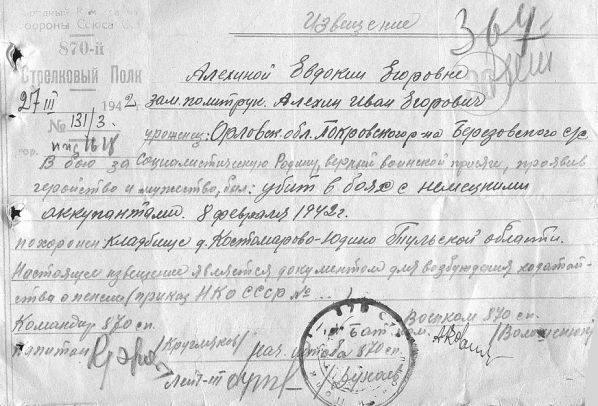 Извещение
364
Обороны Союза С
870-й
Стрелковый Полк
27 III 1942
№ 131/3.
гор.
Алехиной Евдокии Егоровне
зам. политрук. Алехин Иван Егорович
уроженец: Орловск. обл. Покровского р-на Березовского с/с
В бою за Социалистическую Родину, верный воинской присяге, проявив
геройство и мужество, был: убит в боях с немецкими
аккупантами. 8 февраля 1942г.
похоронен кладбище д. Костомарово-Юдино Тульской области.
Настоящее извещение является документом для возбуждения ходатай-
ства о пенсии (приказ НКО СССР № ..)
Командир 870 сп.
Военком 870 сп.
капитан /Кругляков/
Бат. ком.
нач. штаба 870 сп
Лейт-т